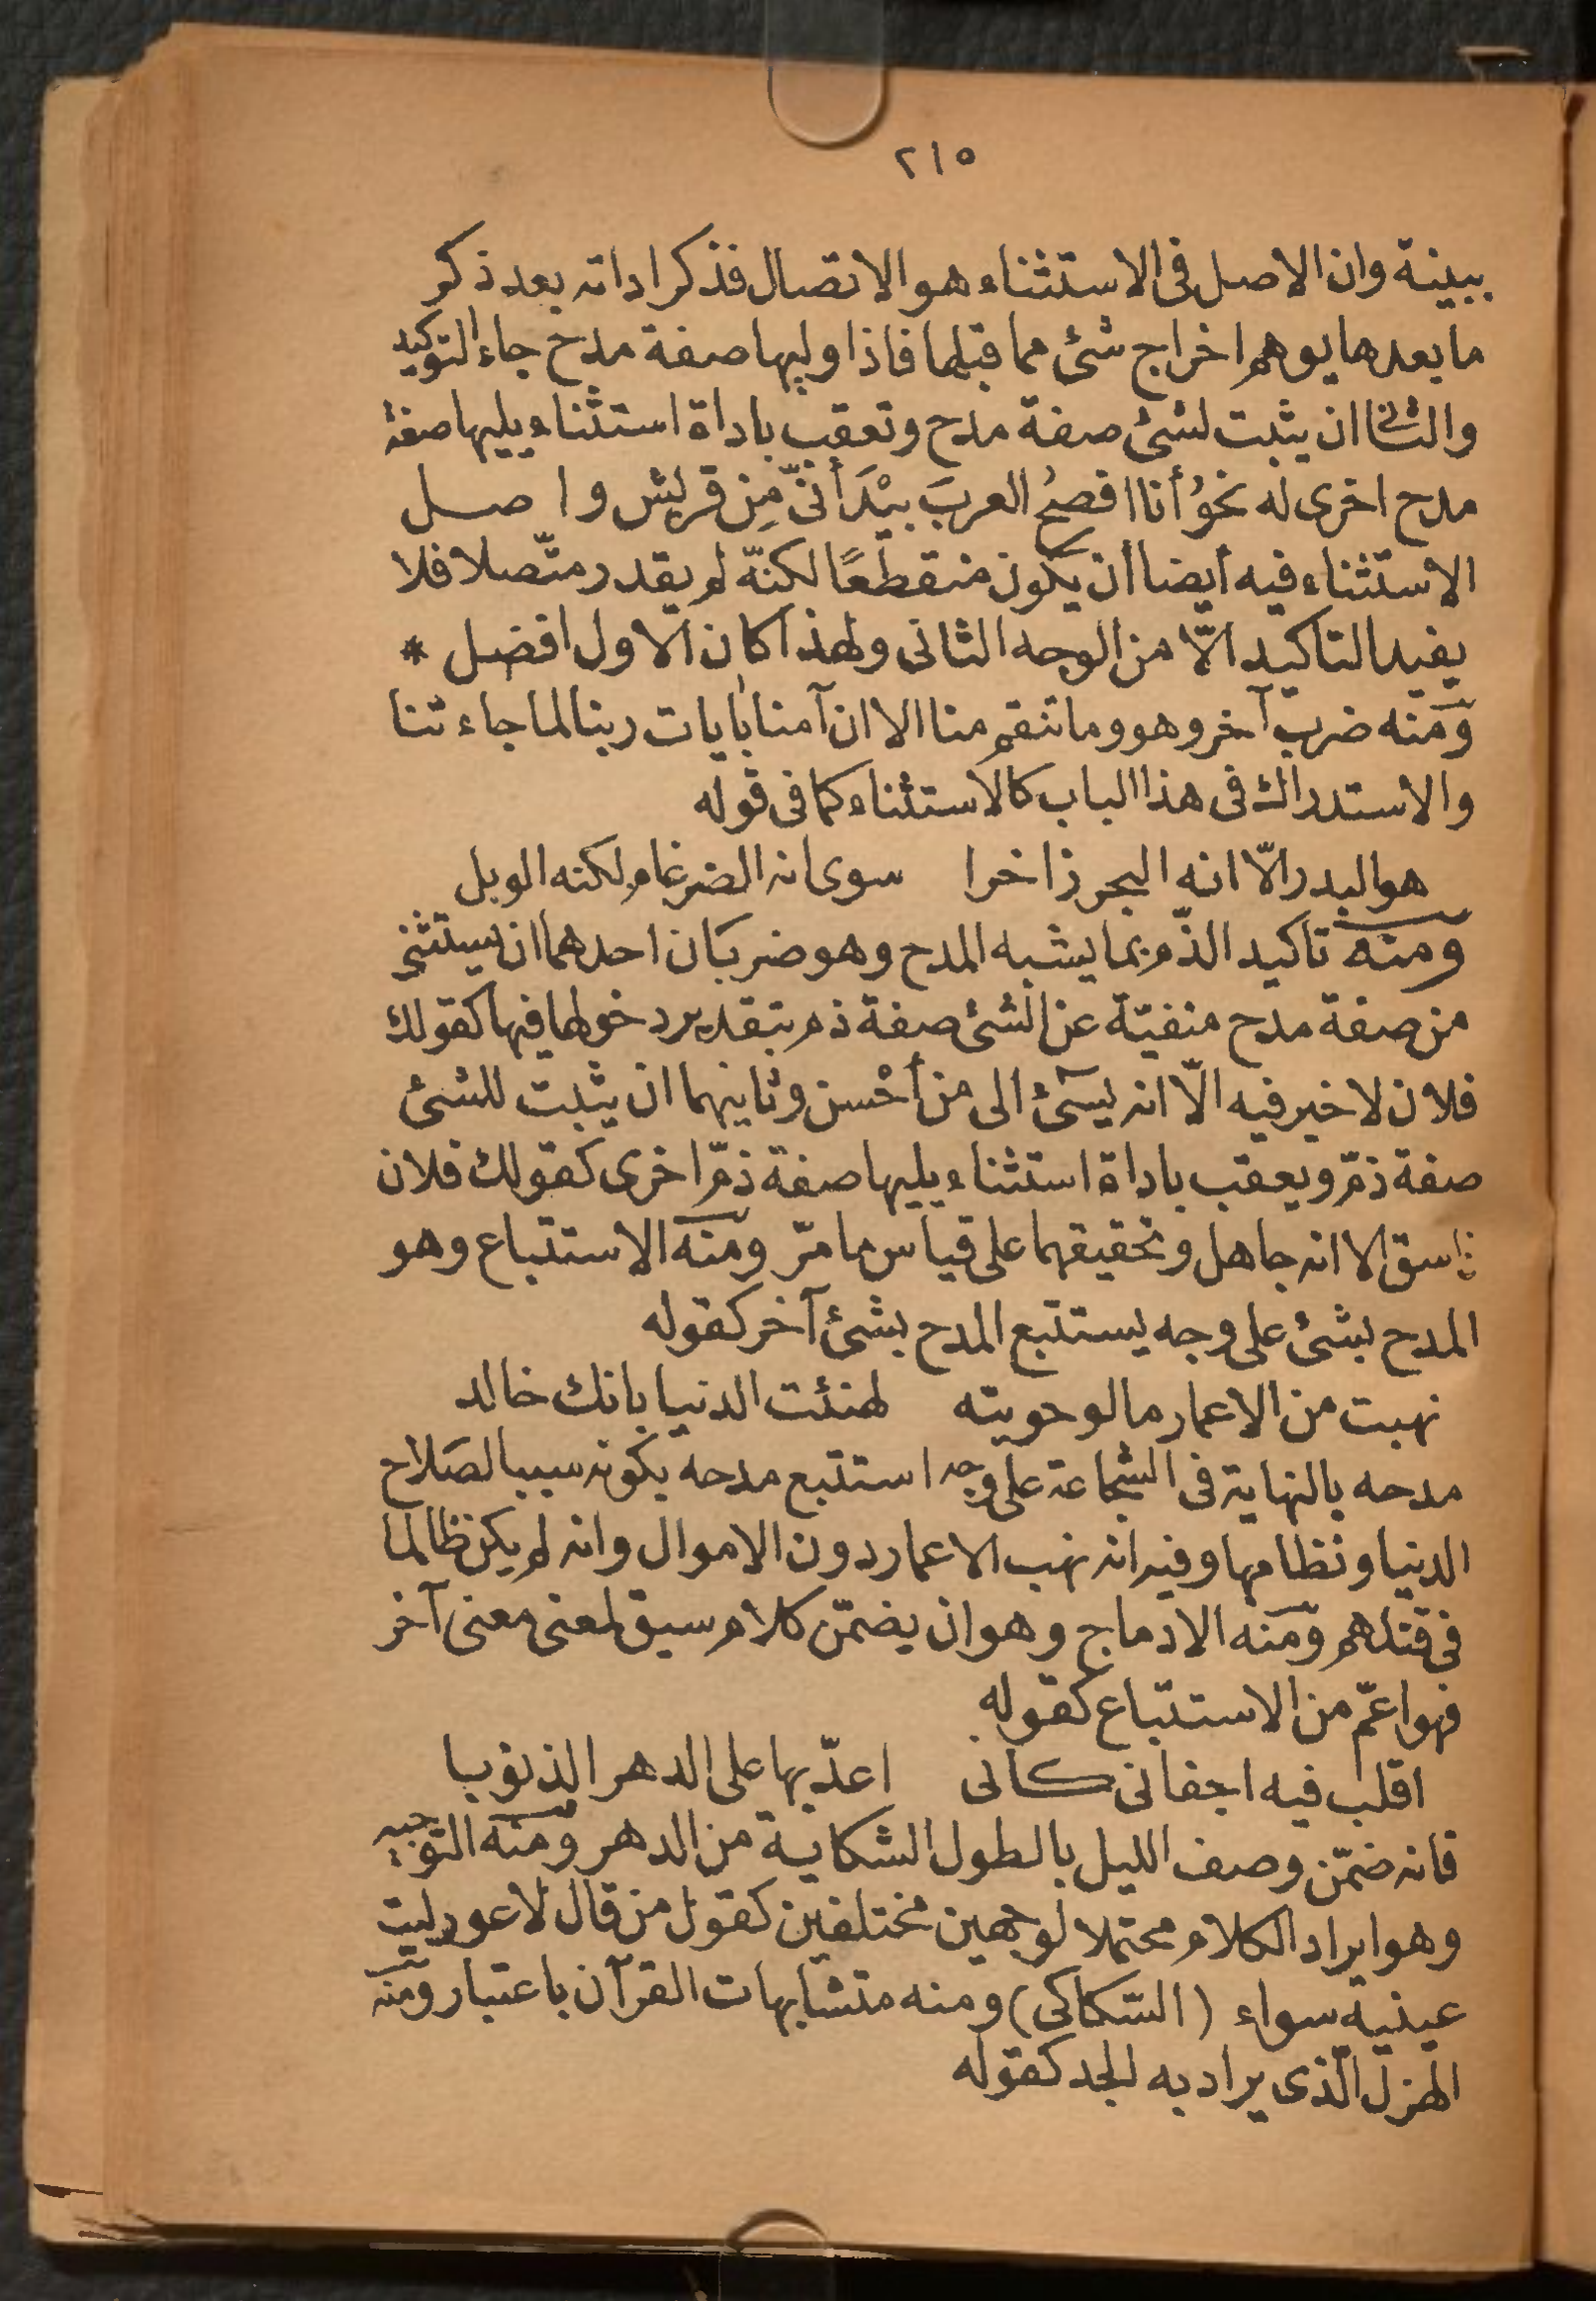 ٢١٥
ببينة وان الاصل فى الاستثناء هو الاتصال فذكر اداته بعد ذكر
ما بعدها يوهم اخراج شئ مما قبلها فاذا وليها صفة مدح جاء التوكيد
والثانى ان يثبت لشئ صفة مدح وتعقب باداة استثناء يليها صفة
مدح اخرى له نحوُ أنا افصحُ العربَ بيْدَ أنّى مِن قريش واصل
الاستثناء فيه أيضا أن يكون منقطعًا لكنّه لم يقدر متّصلا فلا
يفيد التاكيد الّا من الوجه الثانى ولهذا كان الاول افضل *
ومنه ضرب آخر وهو وما تنقم منا الا ان آمنا بايات ربنا لما جاءتنا
والاستدراك فى هذا الباب كالاستثناء كما فى قوله
هو البدر الّا انه البحر زاخرا سوى انه الضرغام لكنه الوبل
ومنه تاكيد الذّم بما يشبه المدح وهو ضربان احدهما ان يستثنى
من صفة مدح منفيّة عن الشئ صفة ذم بتقدير دخولها فيها كقولك
فلان لا خير فيه الّا انه يسئ الى من أحْسن وثانيهما ان يثبت للشئ
صفة ذمّ ويعقب باداة استثناء يليها صفة ذمّ اخرى كقولك فلان
فاسق الا انه جاهل وتحقيقهما على قياس ما مرّ ومنه الاستتباع وهو
المدح بشئ على وجه يستتبع المدح بشئ آخر كقوله
نهبت من الاعمار ما لو حويته لهنئت الدنيا بانك خالد
مدحه بالنهاية فى الشجاعة على وجه استتبع مدحه بكونه سببا لصَلاح
الدنيا ونظامها وفيه انه نهب الاعمار دون الاموال وانه لم يكن ظالما
فى قتلهم ومنه الادماج وهو ان يضمّن كلام سيق لمعنى معنى آخر
فهو اعمّ من الاستتباع كقوله
اقلب فيه اجفانى كأنى اعدّ بها على الدهر الذنوبا
فانه ضمّن وصف الليل بالطول الشكاية من الدهر ومنه التوجيه
وهو ايراد الكلام محتملا لوجهين مختلفين كقول من قال لاعور ليت
عينيه سواء (السّكاكى) ومنه متشابهات القرآن باعتبار ومنه
الهزل الّذى يراد به الجد كقوله